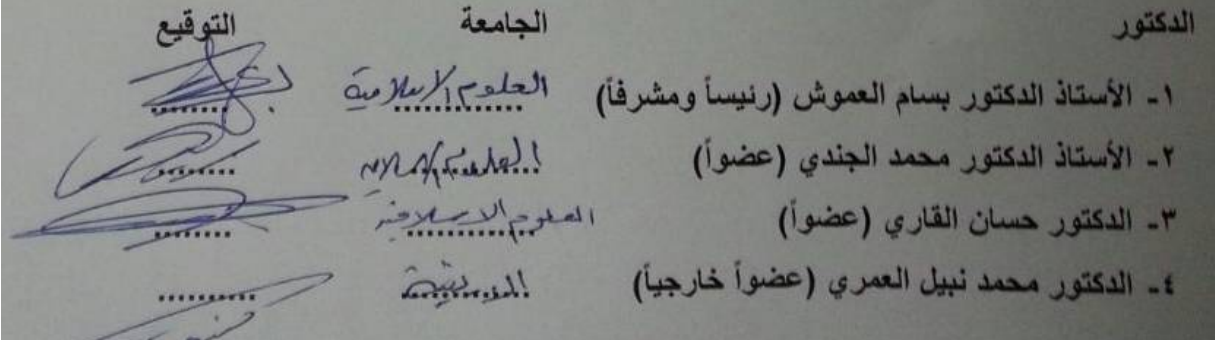 الدكتور الجامعة التوقيع
١- الأستاذ الدكتور بسام العموش (رئيساً ومشرفاً) العلوم الاسلامية
٢- الأستاذ الدكتور محمد الجندي (عضواً) العلوم الاسلامية
٣- الدكتور حسان القاري (عضواً) العلوم الاسلامية
٤- الدكتور محمد نبيل العمري (عضواً خارجياً)